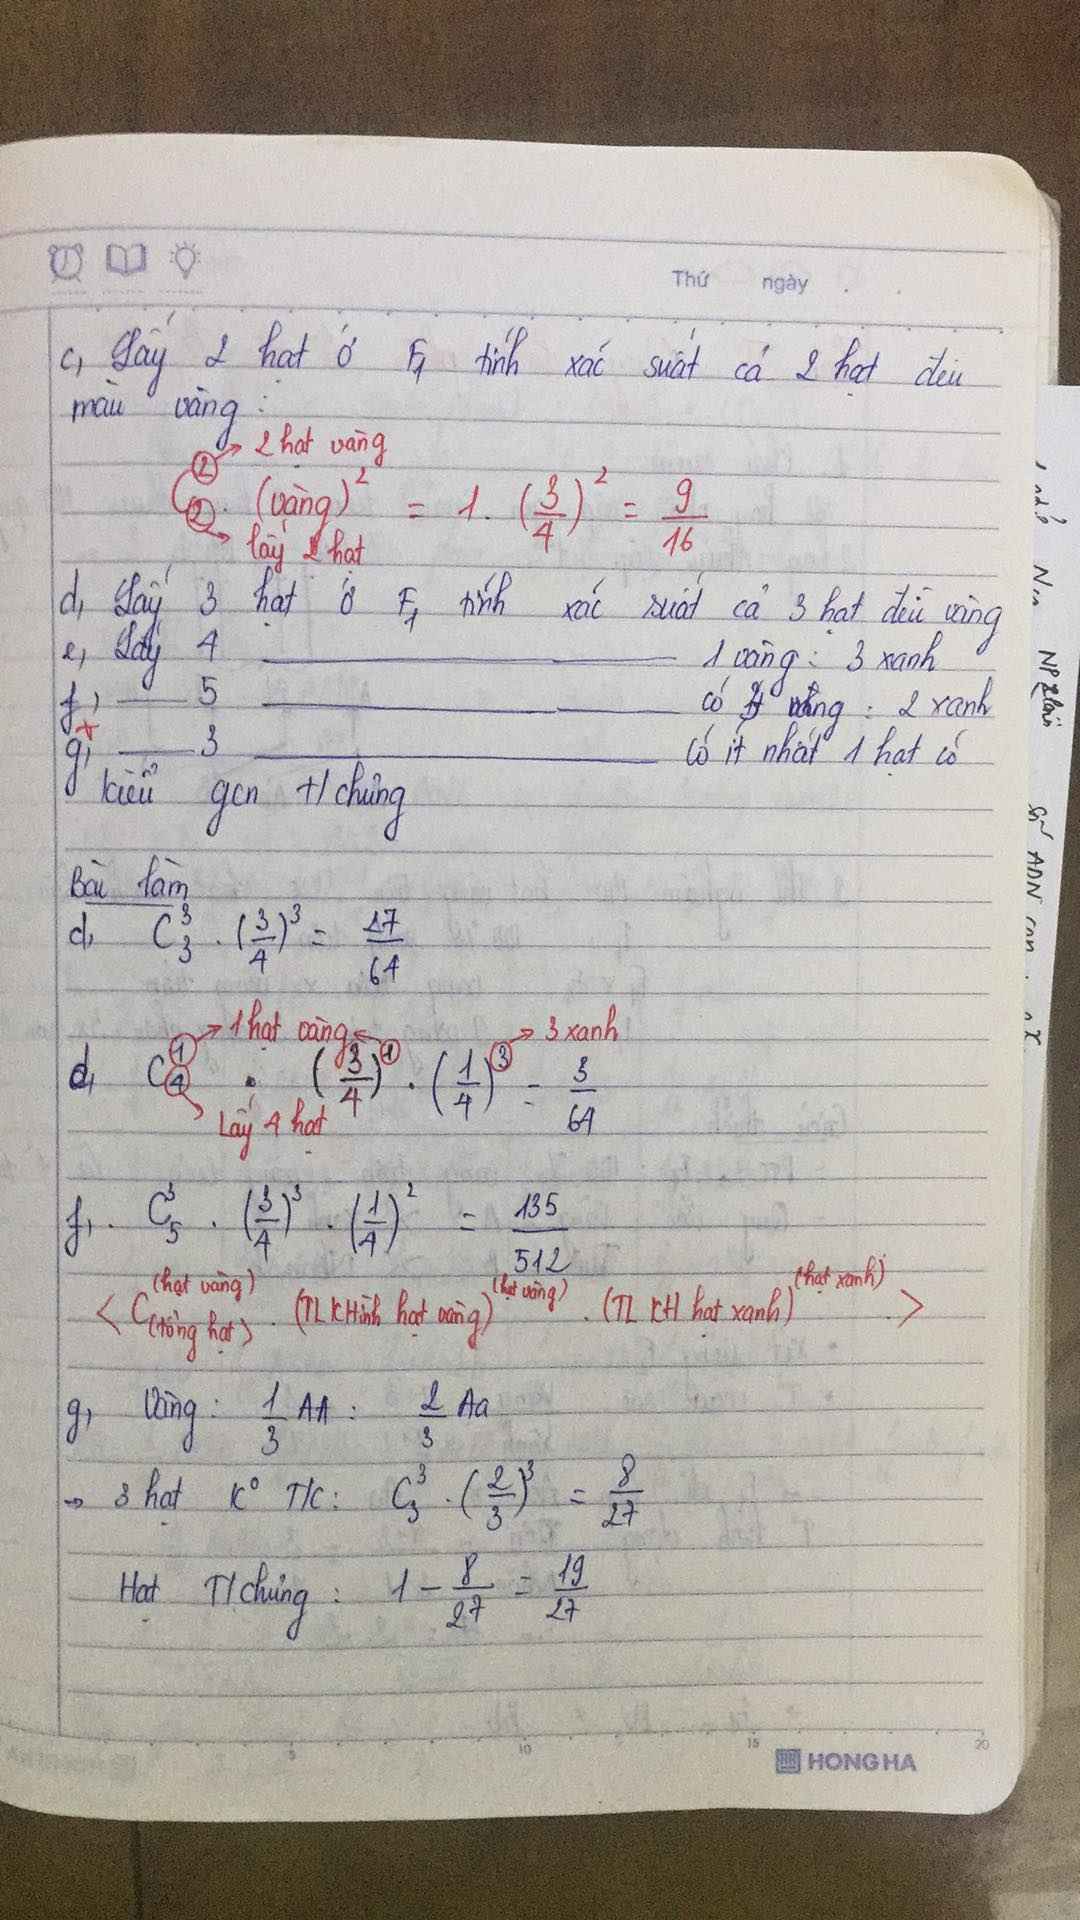 Thứ ngày
c, Lấy 2 hạt ở F1 tính xác suất cả 2 hạt đều
màu vàng :
2 → 2 hạt vàng
C 2 . (vàng)² = 1 . (3/4)² = 9/16
→ lấy 2 hạt
d, Lấy 3 hạt ở F1 tính xác suất cả 3 hạt đều vàng
e, Lấy 4 ——— 1 vàng : 3 xanh
f, — 5 ——— có vàng : 2 xanh
g, — 3 ——— có ít nhất 1 hạt có
kiểu gen T/chủng
Bài làm
d, C³₃ . (3/4)³ = 27/64
→ 1 hạt vàng ← → 3 xanh
d, C¹₄ . (3/4)¹ . (1/4)³ = 3/64
→ Lấy 4 hạt
f, . C³₅ . (3/4)³ . (1/4)² = 135/512
(hạt vàng) (hạt vàng) (hạt xanh)
< C(tổng hạt) . (TL KHình hạt vàng) . (TL KH hạt xanh) >
g, Vàng : 1/3 AA : 2/3 Aa
→ 3 hạt K° T/C : C³₃ . (2/3)³ = 8/27
Hạt T/chủng : 1 - 8/27 = 19/27
5 10 15 20
HONG HA
ADN con